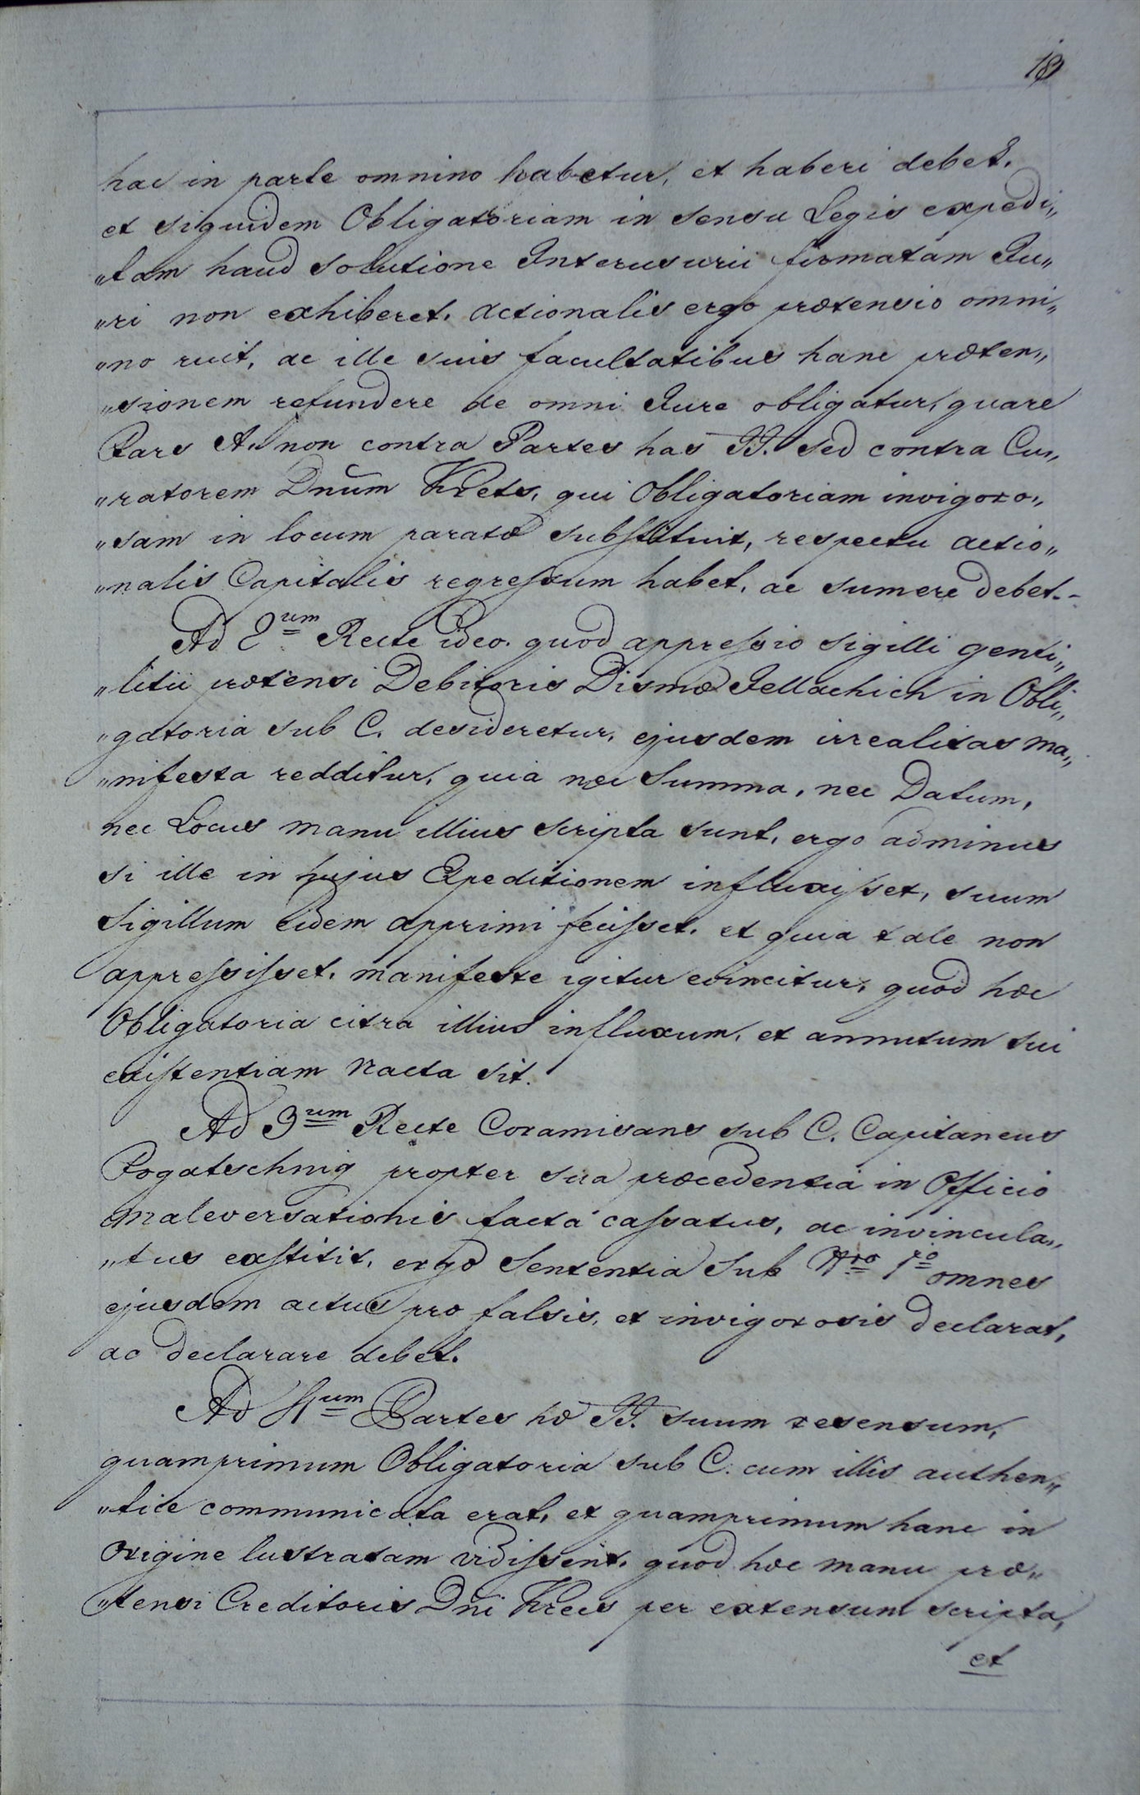 13
hac in parte omnino habetur, et haberi debet.
et siquidem Obligatoriam in sensu Legis expedi„
„tam haud solutione Interusurii firmatam Ju„
„ri non exhiberet. Actionalis ergo prætensio omni„
„no ruit, ac ille suis facultatibus hanc præten„
„sionem refundere de omni Jure obligatur, quare
Pars A. non contra Partes has JJ. sed contra Cu„
„ratorem Dnum Krets, qui Obligatoriam invigoro„
„sam in locum paratæ substituit, respectu actio„
„nalis Capitalis regressum habet, ac sumere debet.-
Ad 2um Recte ideo. quod appressio sigilli genti„
„litii prætensi Debitoris Dismæ Jellachich in Obli„
„gatoria sub C. desideretur, ejusdem irrealitas ma„
„nifesta redditur, quia nec Summa, nec Datum,
nec Locus manu illius scripta sunt, ergo adminus
si ille in hujus Expeditionem influxisset, suum
Sigillum eidem apprimi fecisset. et quia tale non
appressisset. manifeste igitur evincitur, quod hæc
Obligatoria citra illius influxum, et annutum sui
existentiam nacta sit.
Ad 3um Recte Coramisans sub C. Capitaneus
Pogatschnig propter sua præcedentia in Officio
Maleversationis facta cassatus, ac invincula„
„tus exstitit, ergo Sententia Sub Nro 1o omnes
ejusdem actus pro falsis, et invigorosis declarat,
ac declarare debet.
Ad 4um Partes hæ JJ. suum resensum,
quamprimum Obligatoria sub C. cum illis authen„
„tice communicata erat, et quamprimum hanc in
Origine lustratam vidissent. quod hæc manu præ„
„tensi Creditoris Dni Krees per extensum scripta,
et